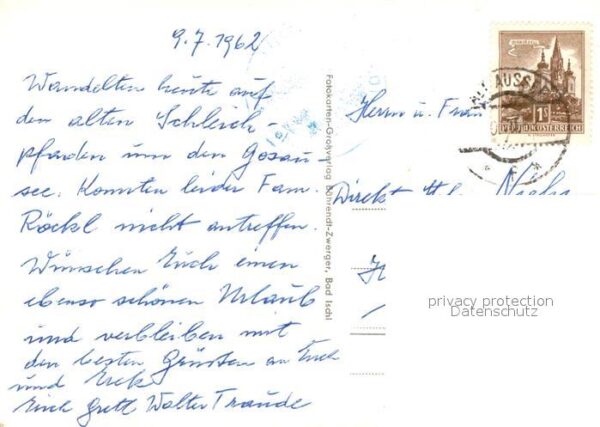 9.7.1962
Wandelten heute auf
den alten Schleich-
pfaden um den Gosau-
see. Konnten leider Fam.
Röckl nicht antreffen.
Wünschen Euch einen
ebenso schönen Urlaub
und verbleiben mit
den besten Grüßen an Euch
und
Euch Walter Traude
Fotokarten-Großverlag Bährendt-Zwerger, Bad Ischl
Herrn u. Frau
Direkt
AUSSEE
1 S
REPUBLIK ÖSTERREICH
privacy protection
Datenschutz